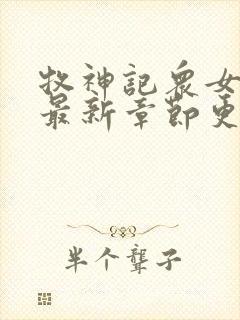 牧神記眾女
最新章節更
半个聾子